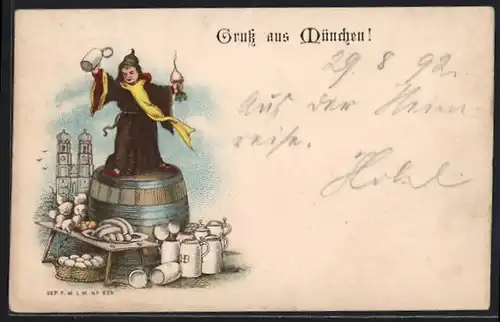 Gruß aus München!
29. 8. 92.
Aus der Heim
reise.
DEP. F. M. L. M. Nº